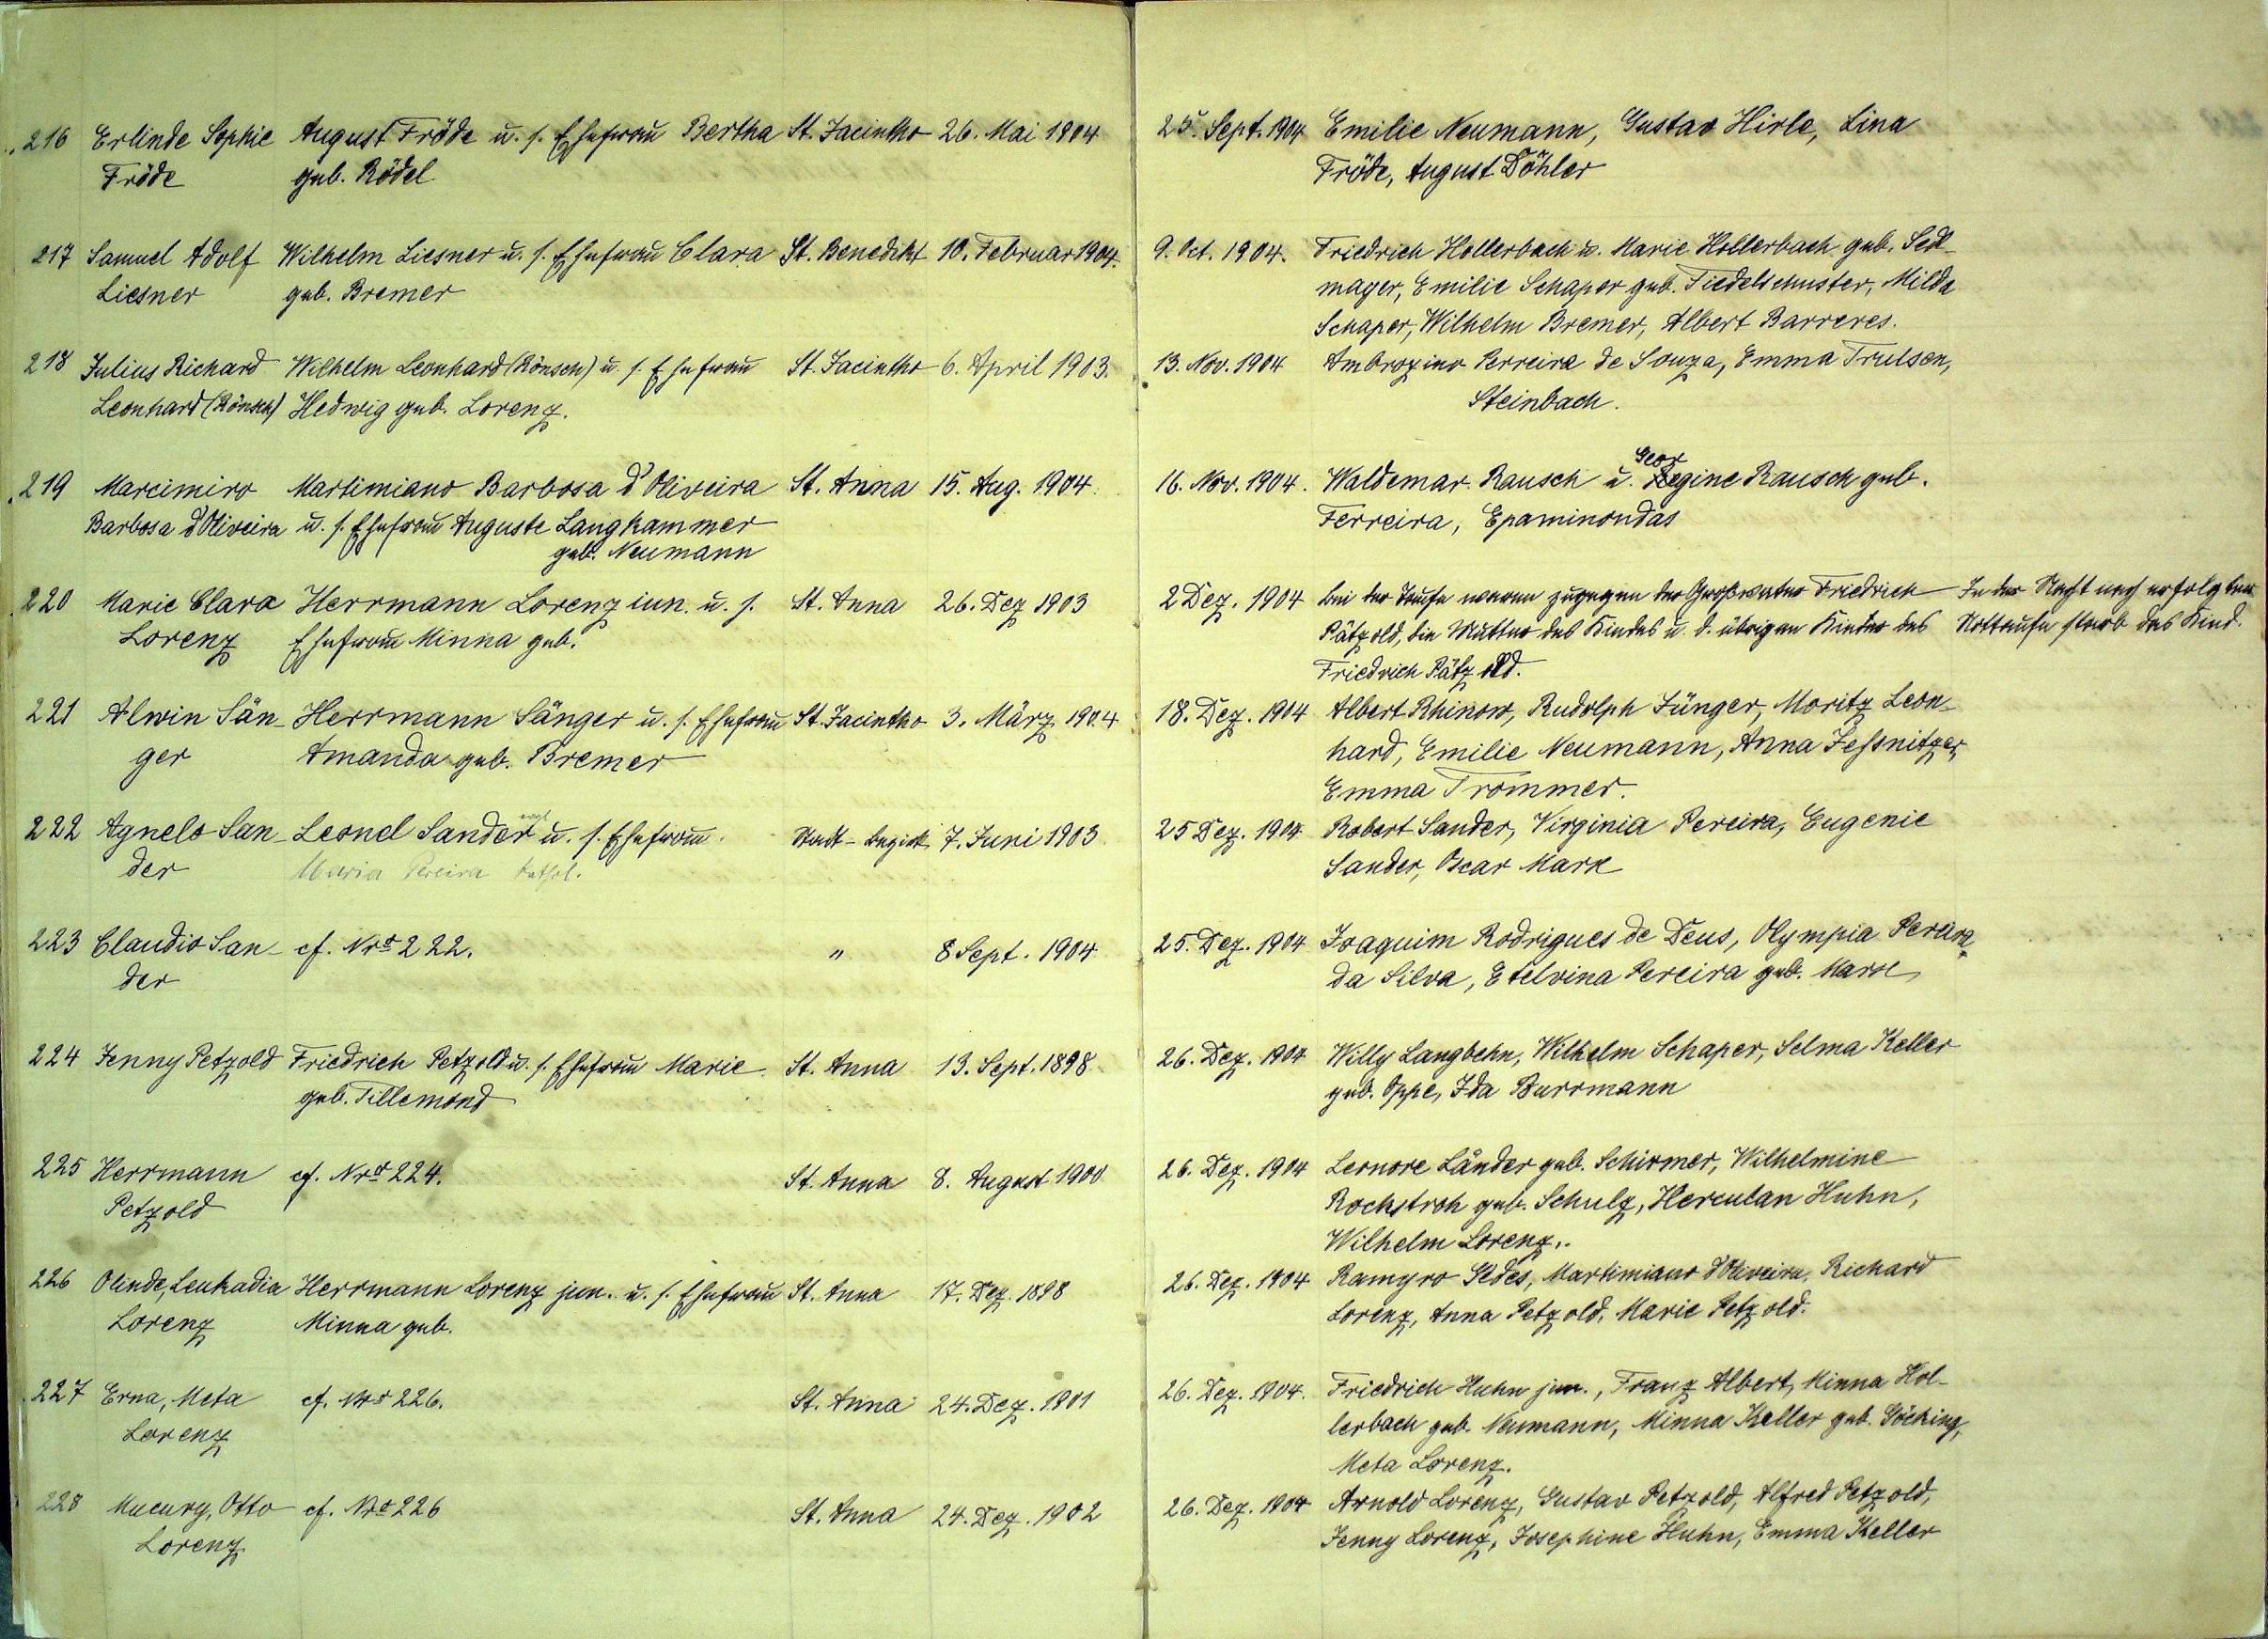 216 Erlinde Sophie August Fröde u. s. Ehefrau Bertha St. Jacintho 26. Mai 1904 25. Sept. 1904 Emilie Neumann, Gustav Hirle, Lina
Fröde geb. Rödel Fröde, August Döhler
217 Samuel Adolf Wilhelm Liesner u. s. Ehefrau Clara St. Benedikt 10. Februar 1904. 9. Oct. 1904. Friedrich Hollerbach u. Marie Hollerbach geb. Sedl-
Liesner geb. Bremer mayer, Emilie Schaper geb. Fiedelschuster, Milda
Schaper, Wilhelm Bremer, Albert Barreres.
218 Julius Richard Wilhelm Leonhard (Rönsch) u. s. Ehefrau St. Jacintho 6. April 1903. 13. Nov. 1904 Ambrozino Perreira de Souza, Emma Trulsen,
Leonhard (Rönsch) Hedwig geb. Lorenz. Steinbach.
219 Marcimiro Martimiano Barbosa d'Oliveira St. Anna 15. Aug. 1904. 16. Nov. 1904. Waldemar Rausch u. Georgine Rausch geb.
Barbosa d'Oliveira u. s. Ehefrau Auguste Langhammer Ferreira, Epaminondas
geb. Neumann
220 Marie Clara Herrmann Lorenz iun. u. s. St. Anna 26. Dez 1903 2 Dez. 1904 Bei der Taufe waren zugegen der Großvater Friedrich In der Nacht nach erfolgter
Lorenz Ehefrau Minna geb. Pätzold, die Mutter des Kindes u. d. übrigen Kinder des Nottaufe starb das Kind.
Friedrich Pätzold.
221 Alwin Sän- Herrmann Sänger u. s. Ehefrau St. Jacintho 3. März 1904 18. Dez. 1904 Albert Rhinow, Rudolph Jünger, Moritz Leon-
ger Amanda geb. Bremer hard, Emilie Neumann, Anna Jessnitzer,
Emma Trommer.
222 Agnelo San- Leonel Sander u. s. Ehefrau Stadt-Bezirk 7. Juni 1903 25 Dez. 1904 Robert Sander, Virginia Pereira, Eugenie
der Maria Pereira kathol. Sander, Oscar Marx
223 Claudio San- cf. Nro 222. " 8 Sept. 1904 25. Dez. 1904 Joaquim Rodrigues de Deus, Olympia Pereira
der da Silva, Etelvina Pereira geb. Marx
224 Jenny Petzold Friedrich Petzold u. s. Ehefrau Marie St. Anna 13. Sept. 1898 26. Dez. 1904 Willy Langbehn, Wilhelm Schaper, Selma Keller
geb. Tillemond geb. Oppe, Ida Burrmann
225 Herrmann cf. Nro 224. St. Anna 8. August 1900 26. Dez. 1904 Leonore Länder geb. Schirmer, Wilhelmine
Petzold Rochstroh geb. Schulz, Herculan Huhn,
Wilhelm Lorenz.
226 Olinde, Leukadia Herrmann Lorenz jun. u. s. Ehefrau St. Anna 17. Dez 1898 26. Dez. 1904 Ramyro Sedes, Martimiano d'Oliveira, Richard
Lorenz Minna geb. Lorenz, Anna Petzold, Marie Petzold.
227 Erna, Meta cf. Nro 226. St. Anna 24. Dez. 1901 26. Dez. 1904. Friedrich Huhn jun., Franz Albert, Minna Hol-
Lorenz lerbach geb. Neumann, Minna Keller geb. Göcking,
Meta Lorenz.
228 Mucury, Otto cf. Nro 226 St. Anna 24. Dez. 1902 26. Dez. 1904 Arnold Lorenz, Gustav Petzold, Alfred Petzold,
Lorenz Jenny Lorenz, Josephine Huhn, Emma Keller